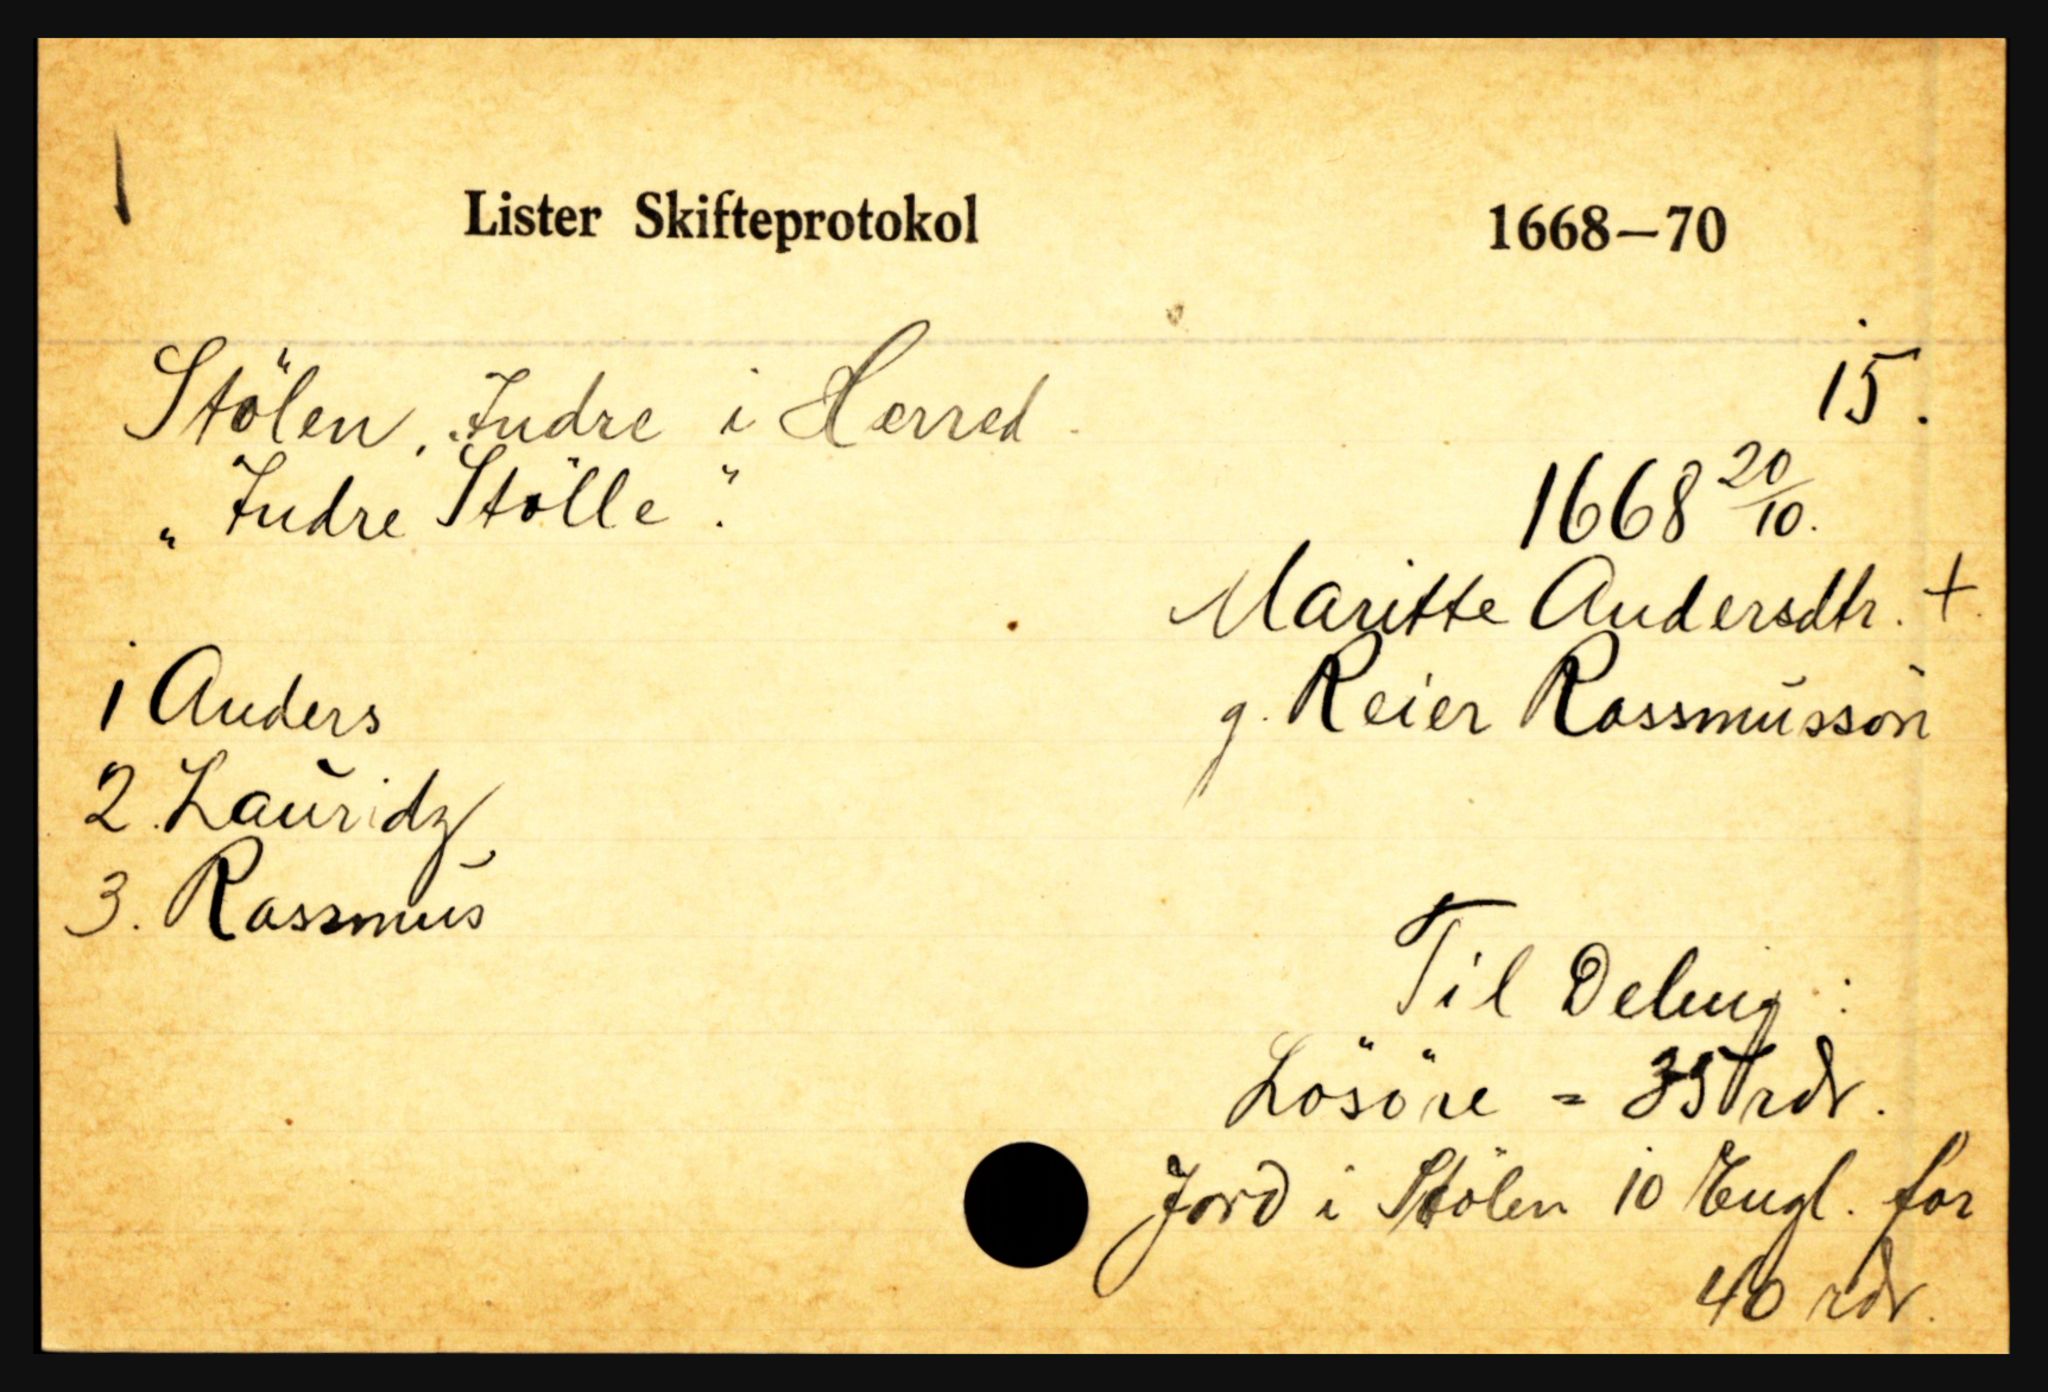 Lister Skifteprotokol 1668–70
Stölen, Indre i Herred. 15.
„Indre Stölle". 1668 20/10.
Maritte Andersdtr. +
1 Anders g. Reier Rassmusson
2. Lauridz
3. Rassmus
Til Deling:
Lösöre = 35 rdr.
Jord i Stölen 10 Engl. for
40 rdr.